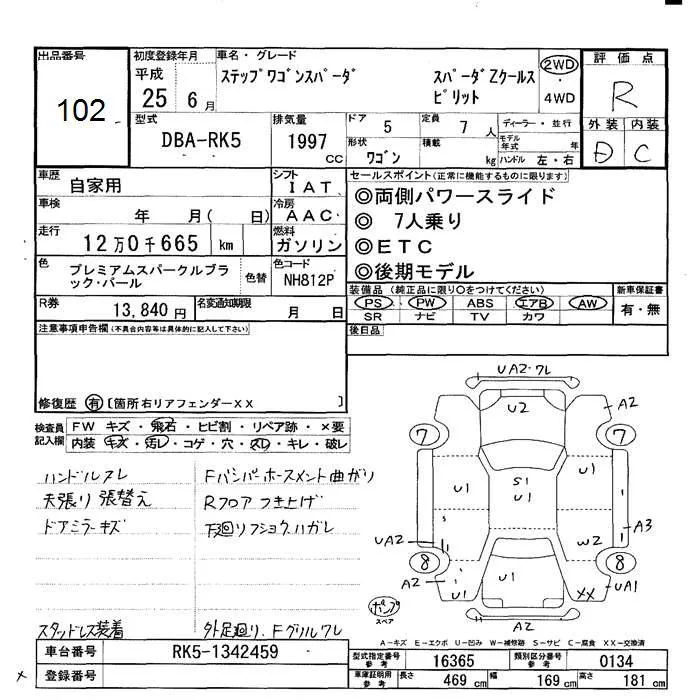 出品番号
102
初度登録年月
平成
25 6月
車名・グレード
ステップワゴンスパーダ
スパーダZクールス
ピリット
2WD
4WD
評価点
R
外装 内装
D C
型式
DBA-RK5
排気量
1997
CC
ドア 5
定員 7 人
ディーラー・並行
モデル
年式 年
形状
ワゴン
積載
kg
ハンドル 左・右
車歴
自家用
シフト
IAT
車検
年 月( 日)
冷房
AAC
走行
12万0千665 km
燃料
ガソリン
色
プレミアムスパークルブラ
ック・パール
色替
色コード
NH812P
R券
13,840 円
名変通知期限
月 日
セールスポイント(正常に機能するものに限ります)
◎両側パワースライド
◎ 7人乗り
◎ETC
◎後期モデル
装備品 (純正品に限り〇をつけてください)
新車保証書
PS PW ABS エアB AW
有・無
SR ナビ TV カワ
後日品
注意事項申告欄(不具合内容等は具体的に記入して下さい)
修復歴 有 〔箇所右リアフェンダーXX 〕
検査員
記入欄
FW キズ・飛石・ヒビ割・リペア跡・×要
内装 キズ・汚レ・コゲ・穴・スレ・キレ・破レ
ハンドルスレ
天張り張替え
ドアミラーキズ
スタッドレス装着
Fバンパーホースメント曲がり
Rフロアつき上げ
下廻りフショクハガレ
外足廻り、Fグリルワレ
UA2・ワレ
U2
A2
7
7
U1
S1
U1
U1
UA2
A3
W2
8
8
A2
U1
U1
XX
UA1
A2
ポンプ
スペア
A-キズ E-エクボ U-凹み W-補修跡 S-サビ C-腐食 XX-交換済
車台番号
RK5-1342459
登録番号
型式指定番号
参考
16365
類別区分番号
参考
0134
車庫証明用
参考
長さ 469 cm
幅 169 cm
高さ 181 cm